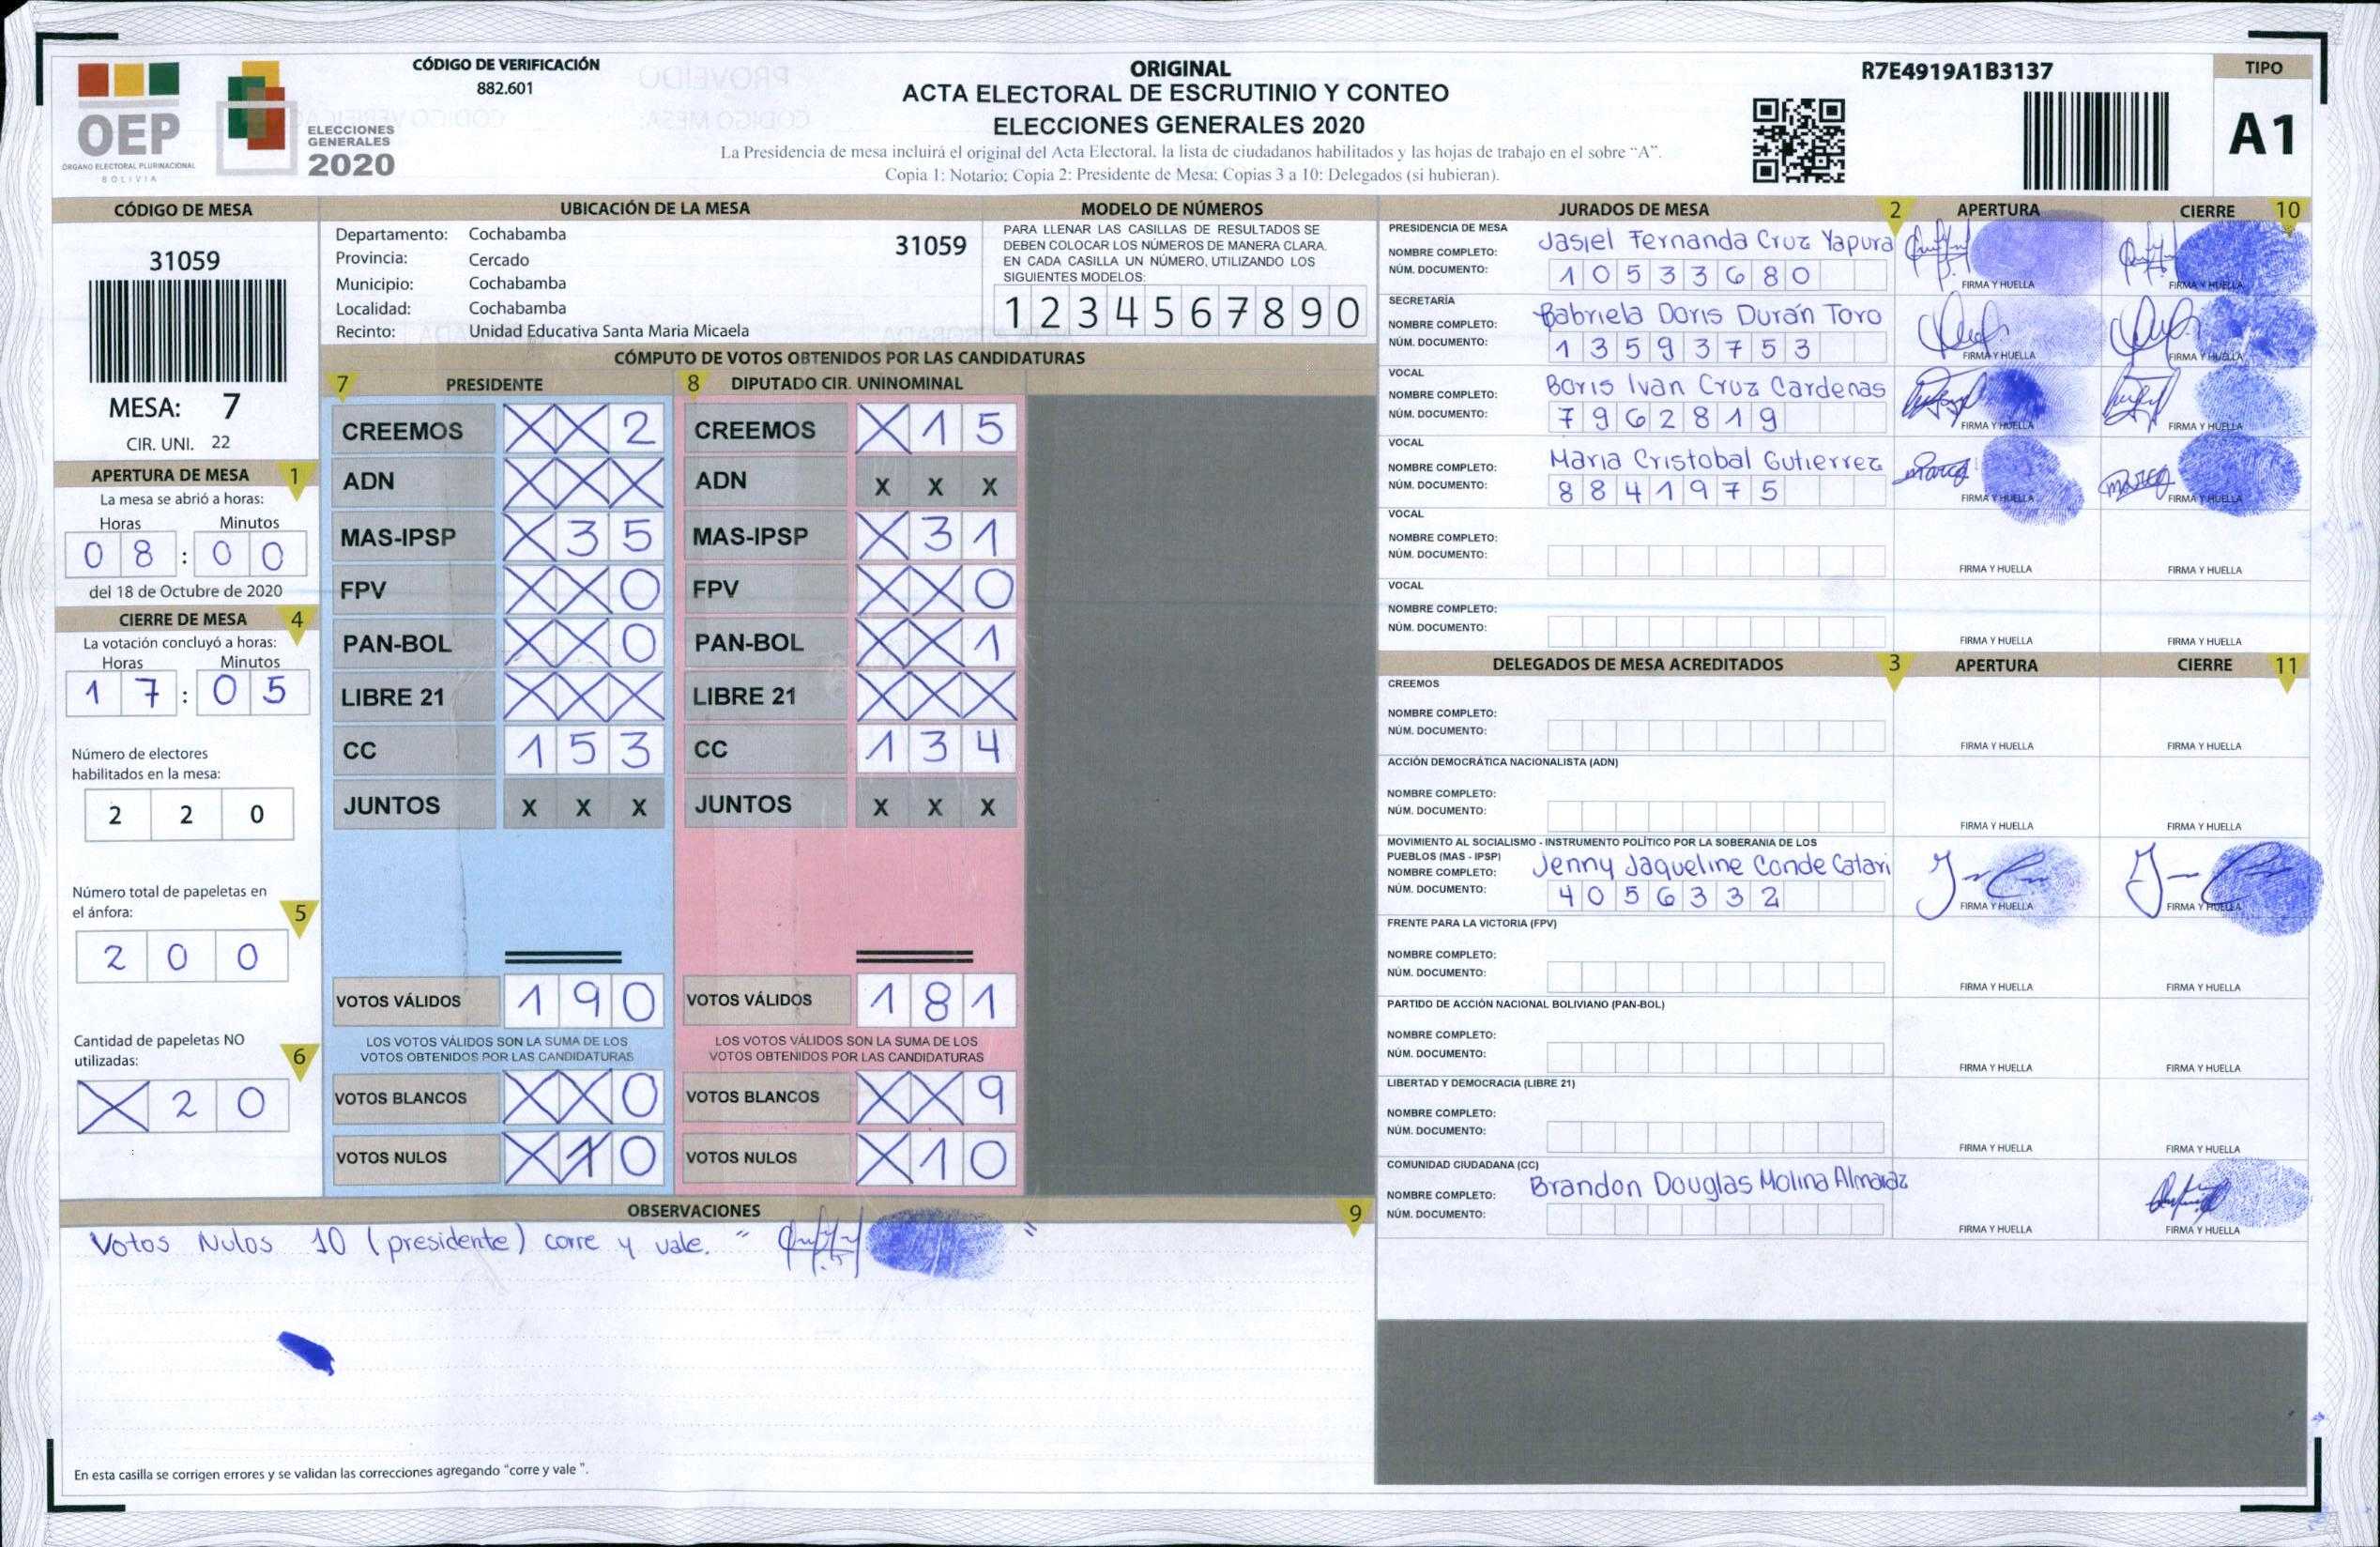 OEP
ÓRGANO ELECTORAL PLURINACIONAL
BOLIVIA
ELECCIONES
GENERALES
2020
CÓDIGO DE VERIFICACIÓN
882.601
ORIGINAL
ACTA ELECTORAL DE ESCRUTINIO Y CONTEO
ELECCIONES GENERALES 2020
La Presidencia de mesa incluirá el original del Acta Electoral, la lista de ciudadanos habilitados y las hojas de trabajo en el sobre “A”.
Copia 1: Notario; Copia 2: Presidente de Mesa; Copias 3 a 10: Delegados (si hubieran).
R7E4919A1B3137
TIPO
A1
CÓDIGO DE MESA
31059
MESA: 7
CIR. UNI. 22
APERTURA DE MESA 1
La mesa se abrió a horas:
Horas Minutos
0 8 : 0 0
del 18 de Octubre de 2020
CIERRE DE MESA 4
La votación concluyó a horas:
Horas Minutos
1 7 : 0 5
Número de electores
habilitados en la mesa:
2 2 0
Número total de papeletas en
el ánfora: 5
2 0 0
Cantidad de papeletas NO
utilizadas: 6
X 2 0
UBICACIÓN DE LA MESA
Departamento: Cochabamba 31059
Provincia: Cercado
Municipio: Cochabamba
Localidad: Cochabamba
Recinto: Unidad Educativa Santa Maria Micaela
MODELO DE NÚMEROS
PARA LLENAR LAS CASILLAS DE RESULTADOS SE
DEBEN COLOCAR LOS NÚMEROS DE MANERA CLARA.
EN CADA CASILLA UN NÚMERO, UTILIZANDO LOS
SIGUIENTES MODELOS:
1 2 3 4 5 6 7 8 9 0
CÓMPUTO DE VOTOS OBTENIDOS POR LAS CANDIDATURAS
7 PRESIDENTE 8 DIPUTADO CIR. UNINOMINAL
CREEMOS X X 2 CREEMOS X 1 5
ADN X X X ADN X X X
MAS-IPSP X 3 5 MAS-IPSP X 3 1
FPV X X 0 FPV X X 0
PAN-BOL X X 0 PAN-BOL X X 1
LIBRE 21 X X X LIBRE 21 X X X
CC 1 5 3 CC 1 3 4
JUNTOS X X X JUNTOS X X X
VOTOS VÁLIDOS 1 9 0 VOTOS VÁLIDOS 1 8 1
LOS VOTOS VÁLIDOS SON LA SUMA DE LOS LOS VOTOS VÁLIDOS SON LA SUMA DE LOS
VOTOS OBTENIDOS POR LAS CANDIDATURAS VOTOS OBTENIDOS POR LAS CANDIDATURAS
VOTOS BLANCOS X X 0 VOTOS BLANCOS X X 9
VOTOS NULOS X 1 0 VOTOS NULOS X 1 0
OBSERVACIONES 9
Votos Nulos 10 (presidente) corre y vale. " "
En esta casilla se corrigen errores y se validan las correcciones agregando “corre y vale ”.
JURADOS DE MESA 2 APERTURA CIERRE 10
PRESIDENCIA DE MESA
NOMBRE COMPLETO: Jasiel Fernanda Cruz Yapura
NÚM. DOCUMENTO: 1 0 5 3 3 6 8 0
FIRMA Y HUELLA FIRMA Y HUELLA
SECRETARÍA
NOMBRE COMPLETO: Gabriela Doris Durán Toro
NÚM. DOCUMENTO: 1 3 5 9 3 7 5 3
FIRMA Y HUELLA FIRMA Y HUELLA
VOCAL
NOMBRE COMPLETO: Boris Ivan Cruz Cardenas
NÚM. DOCUMENTO: 7 9 6 2 8 1 9
FIRMA Y HUELLA FIRMA Y HUELLA
VOCAL
NOMBRE COMPLETO: Maria Cristobal Gutierrez
NÚM. DOCUMENTO: 8 8 4 1 9 7 5
FIRMA Y HUELLA FIRMA Y HUELLA
VOCAL
NOMBRE COMPLETO:
NÚM. DOCUMENTO:
FIRMA Y HUELLA FIRMA Y HUELLA
VOCAL
NOMBRE COMPLETO:
NÚM. DOCUMENTO:
FIRMA Y HUELLA FIRMA Y HUELLA
DELEGADOS DE MESA ACREDITADOS 3 APERTURA CIERRE 11
CREEMOS
NOMBRE COMPLETO:
NÚM. DOCUMENTO:
FIRMA Y HUELLA FIRMA Y HUELLA
ACCIÓN DEMOCRÁTICA NACIONALISTA (ADN)
NOMBRE COMPLETO:
NÚM. DOCUMENTO:
FIRMA Y HUELLA FIRMA Y HUELLA
MOVIMIENTO AL SOCIALISMO - INSTRUMENTO POLÍTICO POR LA SOBERANIA DE LOS
PUEBLOS (MAS - IPSP)
NOMBRE COMPLETO: Jenny Jaqueline Conde Catari
NÚM. DOCUMENTO: 4 0 5 6 3 3 2
FIRMA Y HUELLA FIRMA Y HUELLA
FRENTE PARA LA VICTORIA (FPV)
NOMBRE COMPLETO:
NÚM. DOCUMENTO:
FIRMA Y HUELLA FIRMA Y HUELLA
PARTIDO DE ACCIÓN NACIONAL BOLIVIANO (PAN-BOL)
NOMBRE COMPLETO:
NÚM. DOCUMENTO:
FIRMA Y HUELLA FIRMA Y HUELLA
LIBERTAD Y DEMOCRACIA (LIBRE 21)
NOMBRE COMPLETO:
NÚM. DOCUMENTO:
FIRMA Y HUELLA FIRMA Y HUELLA
COMUNIDAD CIUDADANA (CC)
NOMBRE COMPLETO: Brandon Douglas Molina Almaraz
NÚM. DOCUMENTO:
FIRMA Y HUELLA FIRMA Y HUELLA